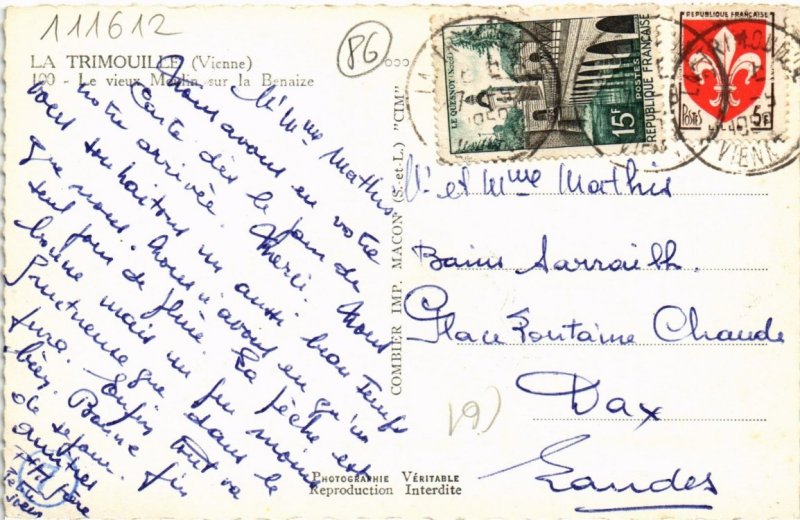 111612
86
LA TRIMOUILLE (Vienne)
100 - Le vieux Moulin sur la Benaize
M. Mme Mathis
Nous avons eu votre
Carte dès le jour de
notre arrivée. Merci. Nous
vous souhaitons un aussi beau Temps
que nous. Nous n'avons eu qu'un
seul jour de pluie. La pêche est
bonne mais un peu moins
fructueuse que dans le
Jura. Enfin Tout va
bien. Bonne fin
de séjour.
amitiés
COMBIER IMP. MACON (S.-et-L.) "CIM"
LE QUESNOY (NORD)
15F
POSTES
REPUBLIQUE FRANÇAISE
REPUBLIQUE FRANÇAISE
POSTES
VIENNE
Mr et Mme Mathis
Bains Sarrailh.
Place Fontaine Chaude
Dax
Landes
19)
PHOTOGRAPHIE VÉRITABLE
Reproduction Interdite